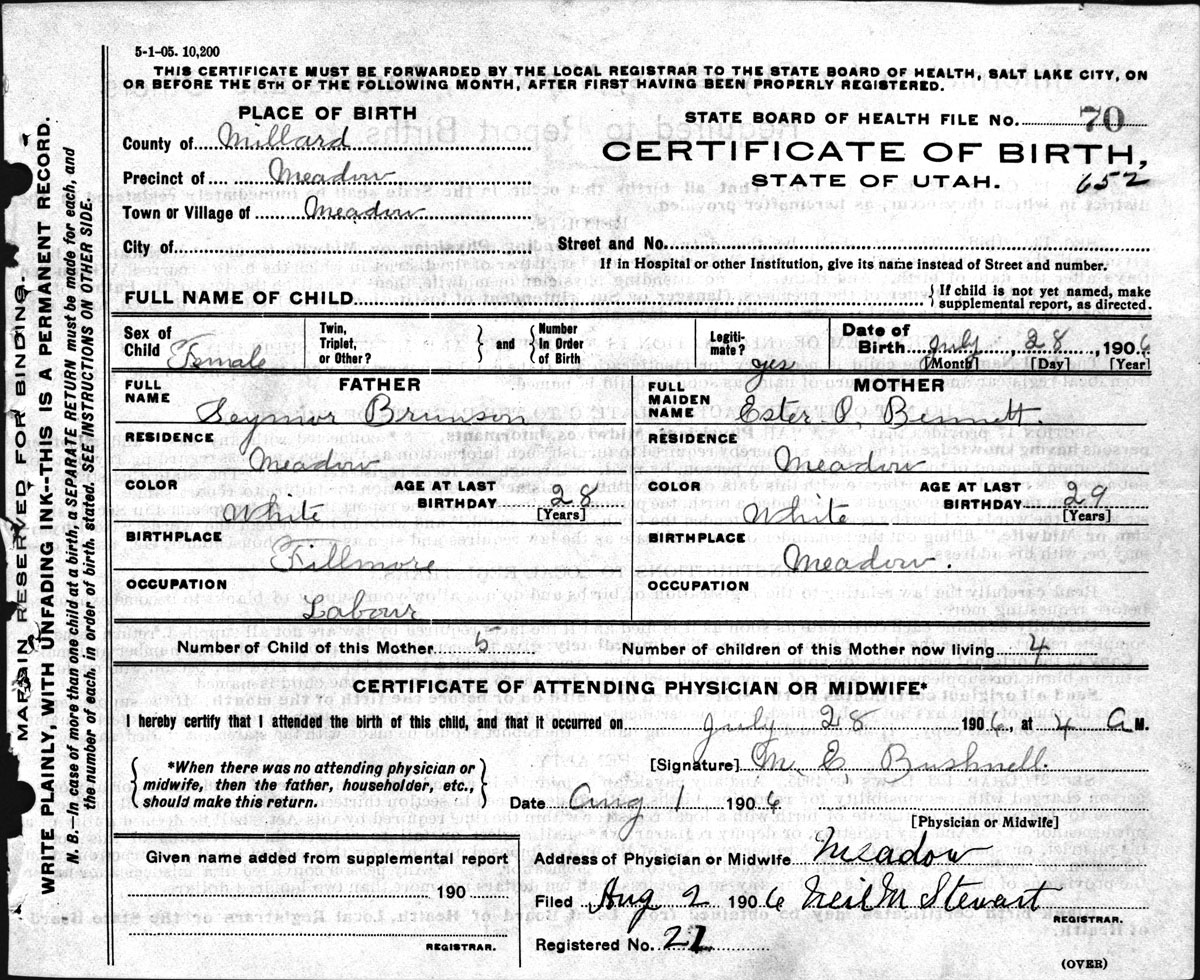 5-1-05. 10,200
THIS CERTIFICATE MUST BE FORWARDED BY THE LOCAL REGISTRAR TO THE STATE BOARD OF HEALTH, SALT LAKE CITY, ON
OR BEFORE THE 5TH OF THE FOLLOWING MONTH, AFTER FIRST HAVING BEEN PROPERLY REGISTERED.
PLACE OF BIRTH
STATE BOARD OF HEALTH FILE NO. 70
County of Millard
CERTIFICATE OF BIRTH,
Precinct of Meadow
STATE OF UTAH. 652
Town or Village of Meadow
City of
Street and No.
If in Hospital or other Institution, give its name instead of Street and number.
FULL NAME OF CHILD
{ If child is not yet named, make
supplemental report, as directed.
Sex of Child Female
Twin, Triplet, or Other? } and { Number In Order of Birth
Legiti-mate? yes
Date of Birth July, 28, 1906
[Month] [Day] [Year]
FATHER
FULL NAME Seymor Brunson
RESIDENCE Meadow
COLOR White
AGE AT LAST BIRTHDAY 28 [Years]
BIRTHPLACE Fillmore
OCCUPATION Labour
MOTHER
FULL MAIDEN NAME Ester O, Bennett.
RESIDENCE Meadow
COLOR White
AGE AT LAST BIRTHDAY 29 [Years]
BIRTHPLACE Meadow.
OCCUPATION
Number of Child of this Mother 5
Number of children of this Mother now living 4
CERTIFICATE OF ATTENDING PHYSICIAN OR MIDWIFE*
I hereby certify that I attended the birth of this child, and that it occurred on July 28 1906, at 4 a M.
{ *When there was no attending physician or
midwife, then the father, householder, etc.,
should make this return. }
[Signature] M. E Bushnell.
Date Aug 1 1906
[Physician or Midwife]
Given name added from supplemental report
190
REGISTRAR.
Address of Physician or Midwife Meadow
Filed Aug 2 1906 Neil M Stewart
REGISTRAR.
Registered No. 21
(OVER)
MARGIN RESERVED FOR BINDING.
WRITE PLAINLY, WITH UNFADING INK--THIS IS A PERMANENT RECORD.
N. B.—In case of more than one child at a birth, a SEPARATE RETURN must be made for each, and
the number of each, in order of birth, stated. SEE INSTRUCTIONS ON OTHER SIDE.